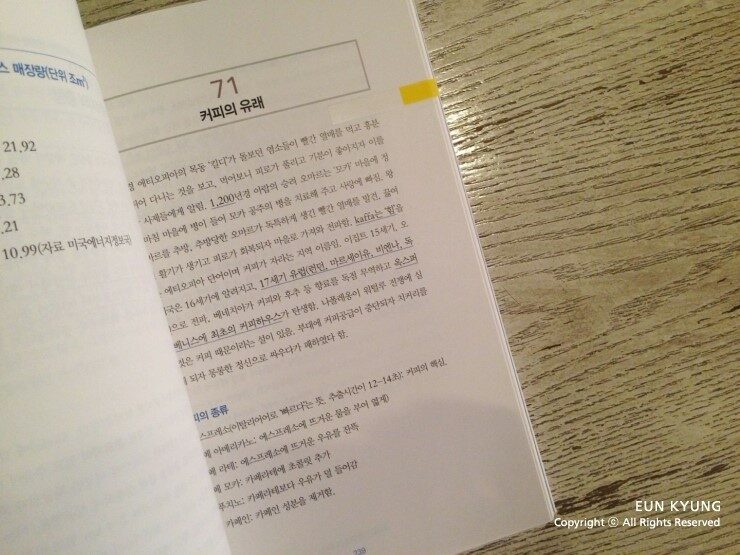 스 매장량(단위 조㎥)
21.92
.28
3.73
.21
10.99(자료 미국에너지정보국)
71
커피의 유래
에티오피아의 목동 '칼디'가 돌보던 염소들이 빨간 열매를 먹고 흥분
다니는 것을 보고, 먹어보니 피로가 풀리고 기분이 좋아지자 이를
사제들에게 알림. 1,200년경 아랍의 승려 오마르는 '모카' 마을에 정
마침 마을에 병이 들어 모카 공주의 병을 치료해 주고 사랑에 빠짐. 왕
마르를 추방. 추방당한 오마르가 독특하게 생긴 빨간 열매를 발견, 끓여
활기가 생기고 피로가 회복되자 마을로 가져와 전파함. kaffa는 '힘'을
에티오피아 단어이며 커피가 자라는 지역 이름임. 이집트 15세기, 오
국은 16세기에 알려지고, 17세기 유럽(런던, 마르세이유, 비엔나, 독
으로 전파. 베네치아가 커피와 후추 등 향료를 독점 무역하고 옥스퍼
베니스에 최초의 커피하우스가 탄생함. 나폴레옹이 워털루 전쟁에 실
것은 커피 때문이라는 설이 있음. 부대에 커피공급이 중단되자 치커리를
되자 몽롱한 정신으로 싸우다가 패하였다 함.
피의 종류
스프레소(이탈리아어로 '빠르다'는 뜻, 추출시간이 12~14초): 커피의 핵심.
페 아메리카노: 에스프레소에 뜨거운 물을 부어 엷게)
페 라테: 에스프레소에 뜨거운 우유를 잔뜩
페 모카: 카페라테에 초콜릿 추가
푸치노: 카페라테보다 우유가 덜 들어감
카페인: 카페인 성분을 제거함.
239
EUN KYUNG
Copyright ⓒ All Rights Reserved